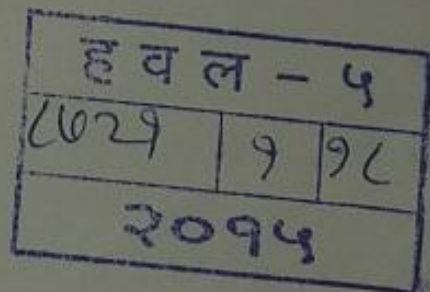 ह व ल - ५
८७२१ १ १८
२०१५